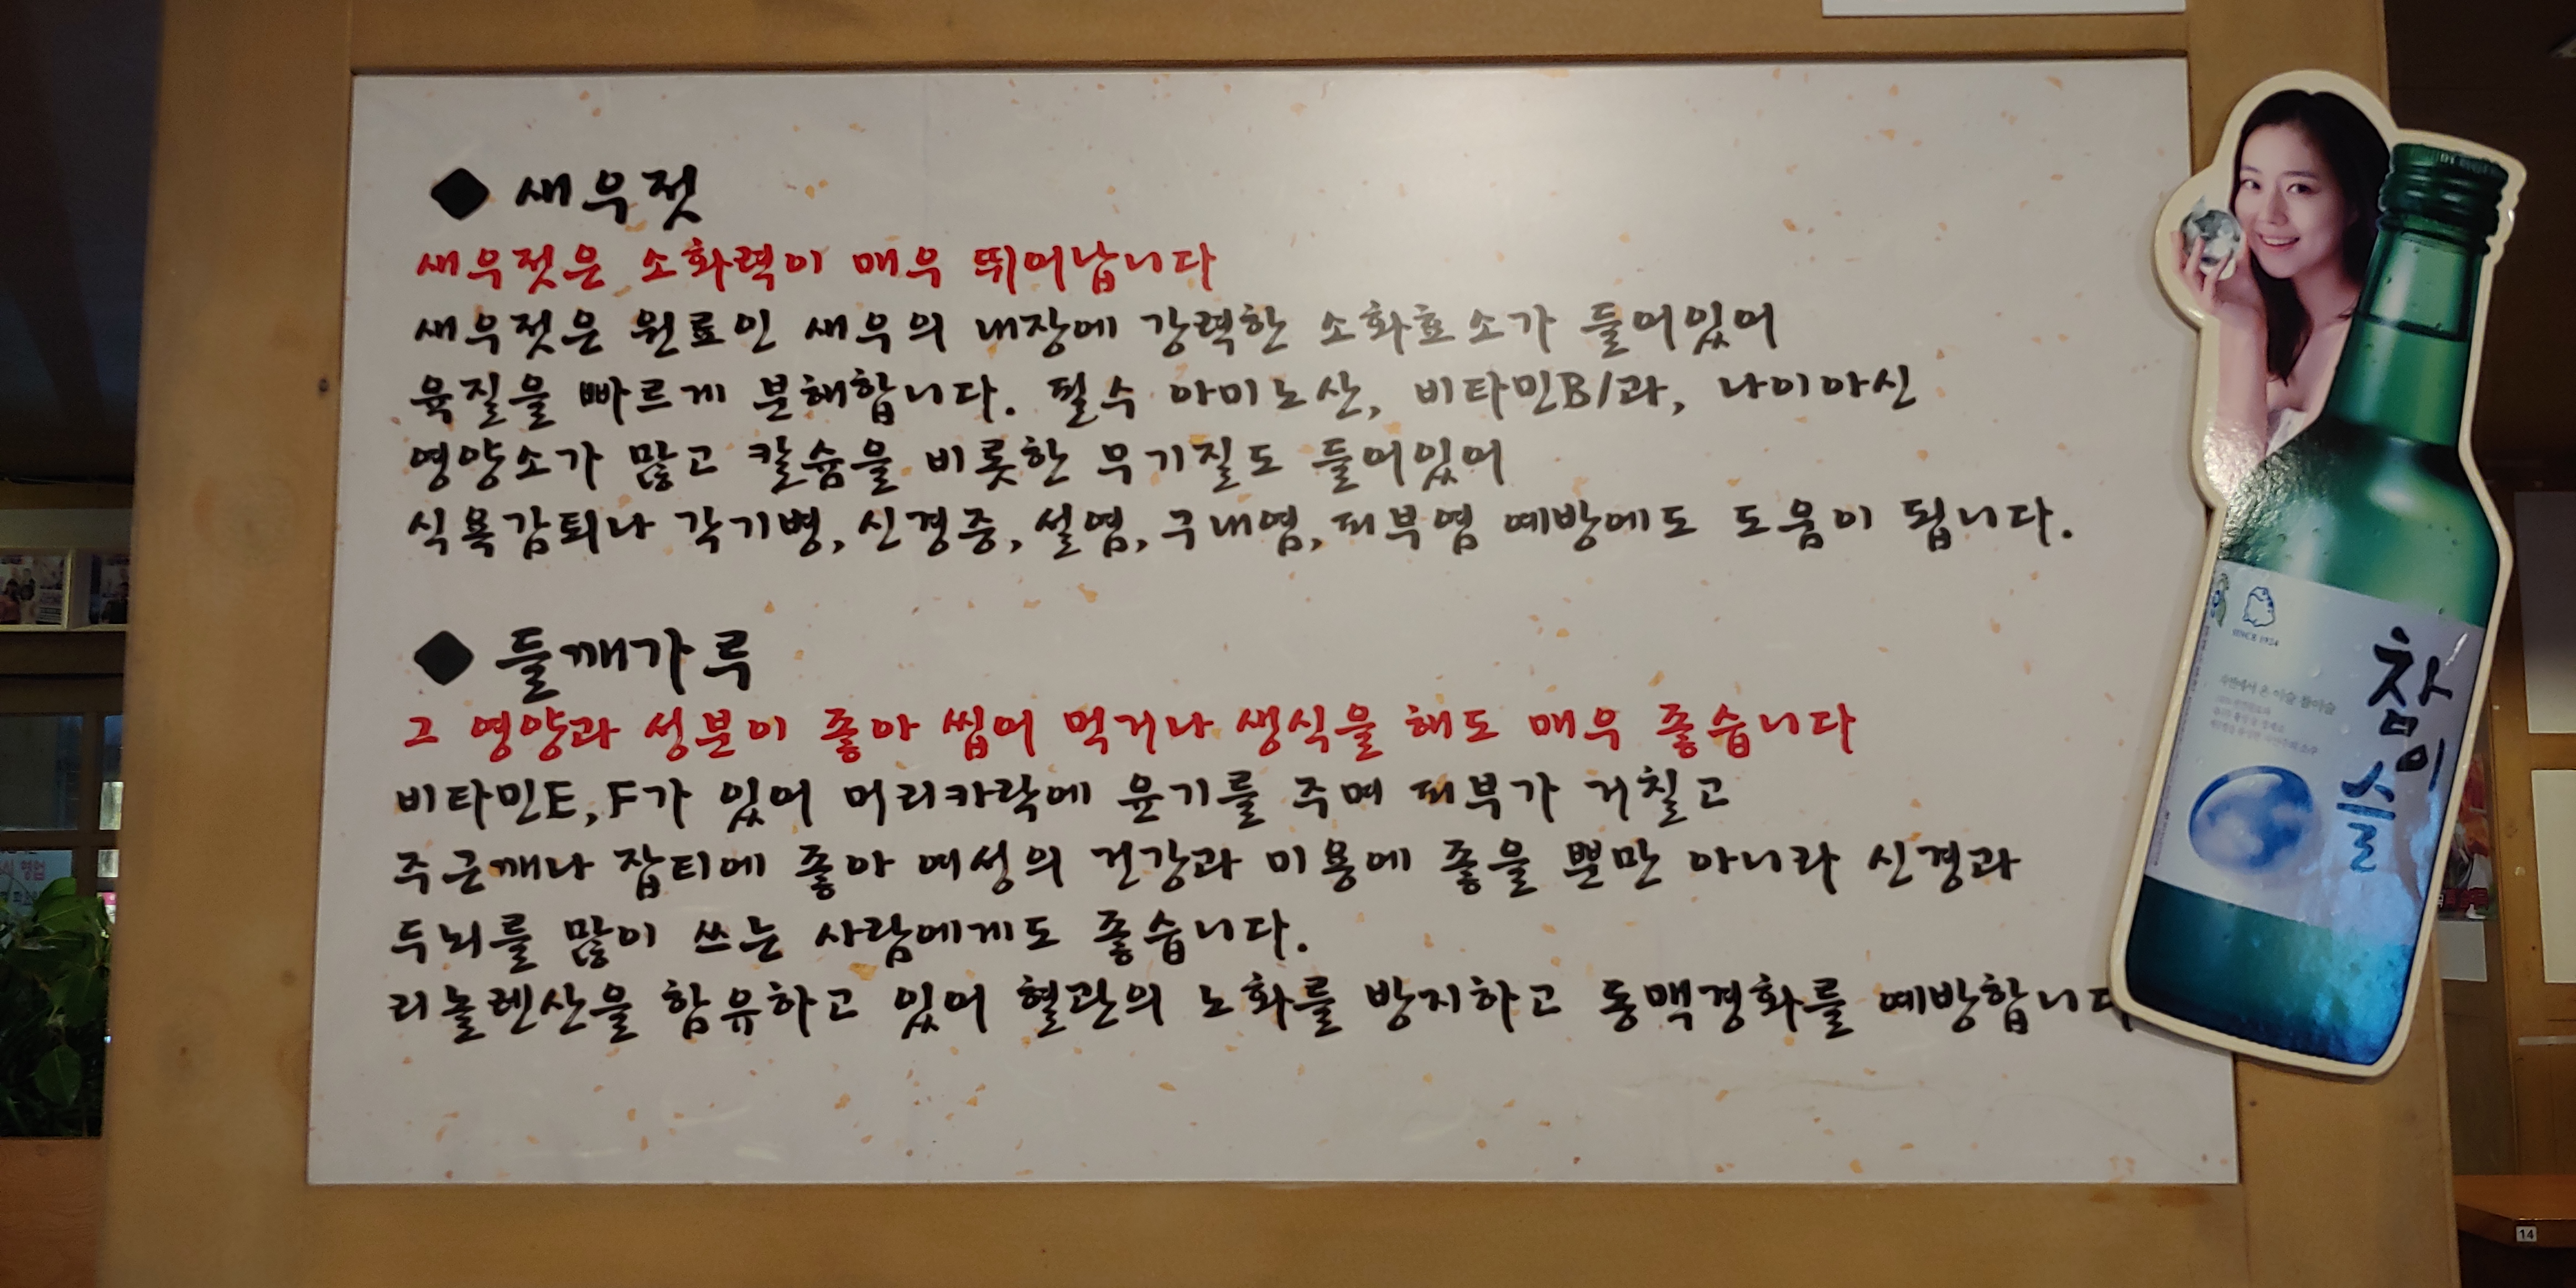 ◆ 새우젓
새우젓은 소화력이 매우 뛰어납니다
새우젓은 원료인 새우의 내장에 강력한 소화효소가 들어있어
육질을 빠르게 분해합니다. 필수 아미노산, 비타민B1과, 나이아신
영양소가 많고 칼슘을 비롯한 무기질도 들어있어
식욕감퇴나 각기병, 신경증, 설염, 구내염, 피부염 예방에도 도움이 됩니다.
◆ 들깨가루
그 영양과 성분이 좋아 씹어 먹거나 생식을 해도 매우 좋습니다
비타민E, F가 있어 머리카락에 윤기를 주며 피부가 거칠고
주근깨나 잡티에 좋아 여성의 건강과 미용에 좋을 뿐만 아니라 신경과
두뇌를 많이 쓰는 사람에게도 좋습니다.
리놀렌산을 함유하고 있어 혈관의 노화를 방지하고 동맥경화를 예방합니다
SINCE 1924
참이슬
영업
14